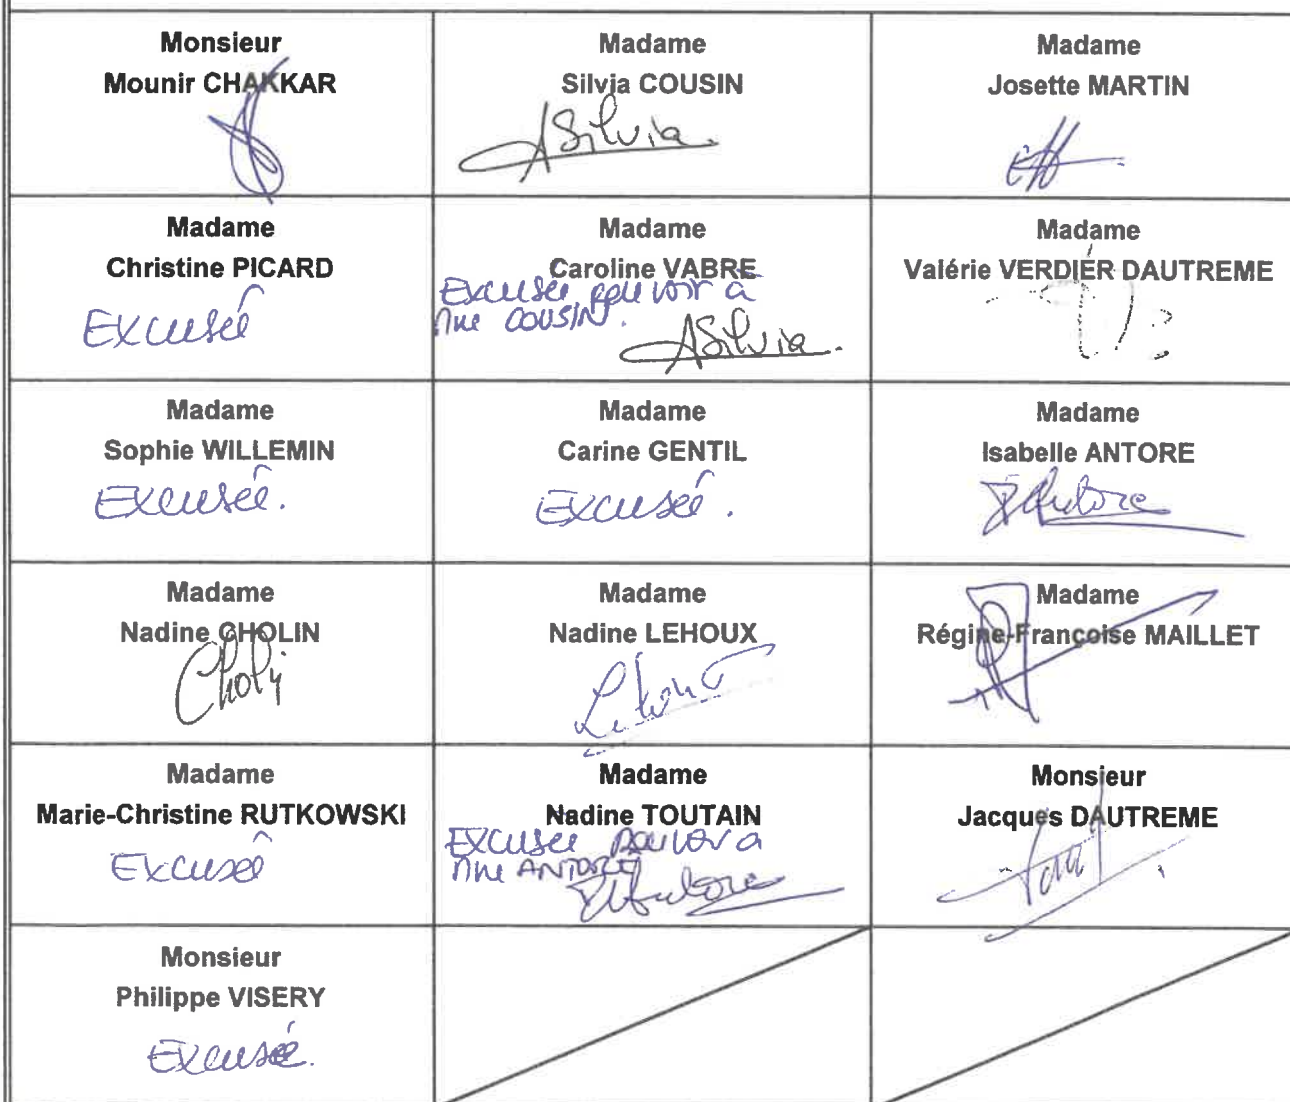 Monsieur
Mounir CHAKKAR
Madame
Silvia COUSIN
Silvia
Madame
Josette MARTIN
Madame
Christine PICARD
Excusée
Madame
Caroline VABRE
Excusée pouvoir à
Mme COUSIN.
Silvia
Madame
Valérie VERDIER DAUTREME
Madame
Sophie WILLEMIN
Excusée.
Madame
Carine GENTIL
Excusée.
Madame
Isabelle ANTORE
Antore
Madame
Nadine CHOLIN
Cholin
Madame
Nadine LEHOUX
Lehoux
Madame
Régine-Françoise MAILLET
Madame
Marie-Christine RUTKOWSKI
Excusé
Madame
Nadine TOUTAIN
Excusée pouvoir à
Mme ANTORE
Antore
Monsieur
Jacques DAUTREME
Monsieur
Philippe VISERY
Excusée.